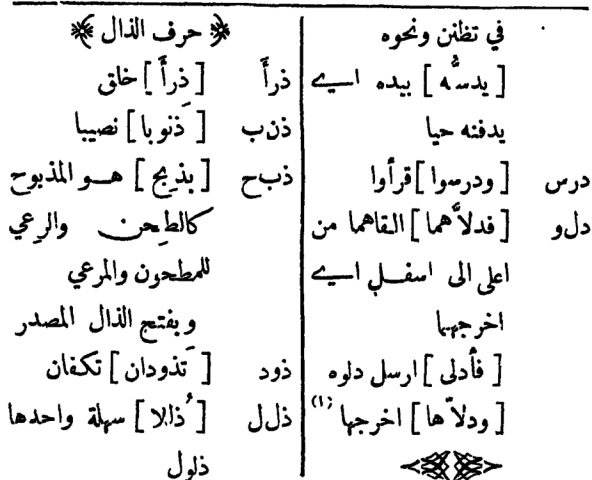 في تظنن ونحوه
[ يدسُّه ] بيده اي
يدفنه حيا
درس [ ودرسوا ] قرأوا
دلو [ فدلاَّهما ] القاهما من
اعلى الى اسفل اي
اخرجهما
[ فأدلى ] ارسل دلوه
[ ودلاّها ] اخرجها (١)
حرف الذال
ذرأَ [ ذرأَ ] خلق
ذنب [ ذَنوبا ] نصيبا
ذبح [ بذِبح ] هو المذبوح
كالطحن والرعي
للمطحون والمرعي
وبفتح الذال المصدر
ذود [ تَذودان ] تكفان
ذلل [ ذُللا ] سهلة واحدها
ذلول